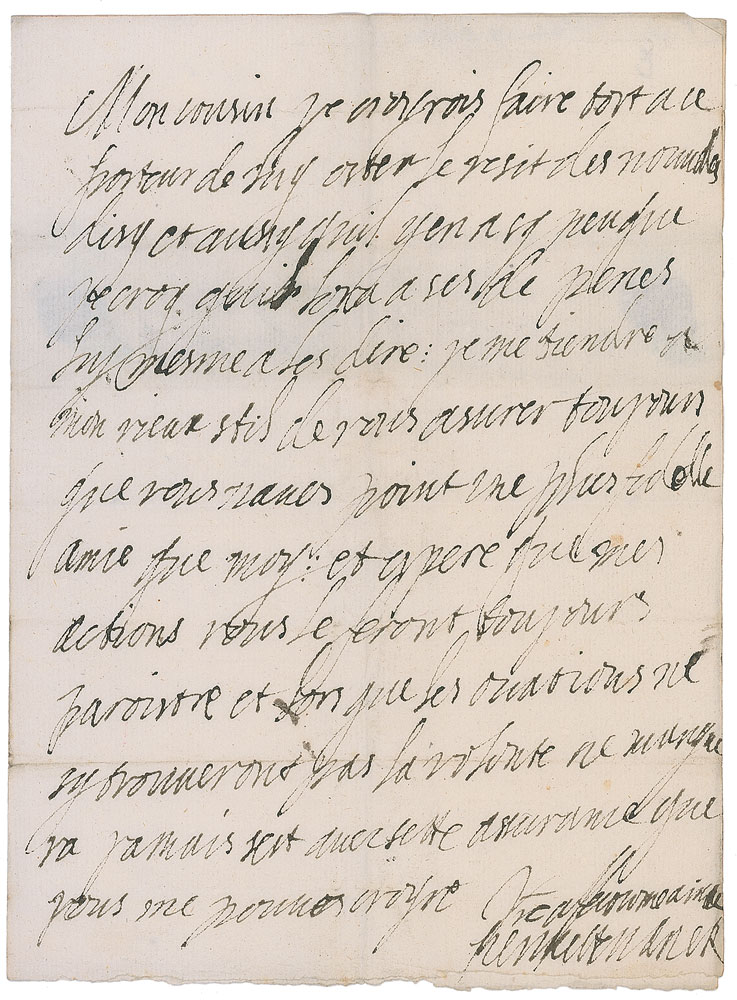 Mon cousin je croirois faire tort a ce
porteur de luy oster le resit des nouvelles
disy et aussy quil y en a sy peu que
je croy quil sera a ses de penes
luy mesme a les dire: je me tiendre a
mon vieux stil de vous asurer toujours
que vous naves point une plus fidelle
amie que moy: et espere que mes
actions vous le feront toujours
paroistre et lors que les ocations ne
sy trouveront pas la volonte ne manque
ra jamais sest avec sette assurance que
vous me pouves croyre